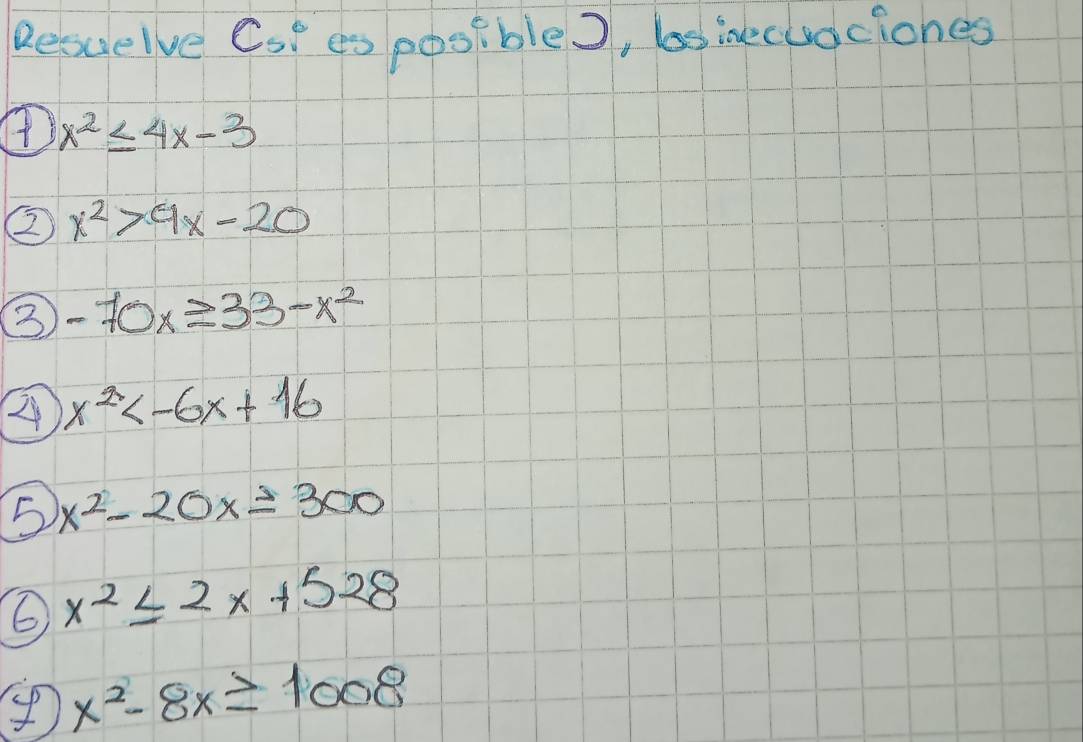 Resuelve (si es posible), las inecuaciones
① x² ≤ 4x - 3
② x² > 9x - 20
③ -70x ≥ 33 - x²
④ x² < -6x + 16
⑤ x² - 20x ≥ 300
⑥ x² ≤ 2x + 528
⑦ x² - 8x ≥ 1008